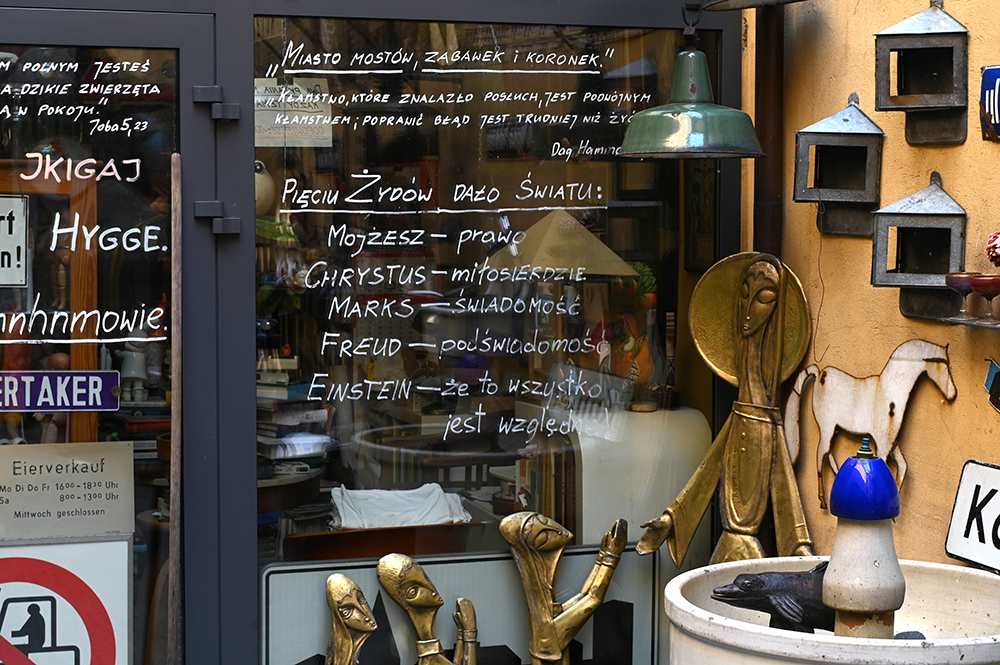 M POLNYM JESTEŚ
A DZIKIE ZWIERZĘTA
Ą W POKOJU."
Joba 5,23
JKIGAJ
rt
n!
HYGGE.
nnhnmowie.
ERTAKER
Eierverkauf
Mo Di Do Fr 16⁰⁰-18³⁰ Uhr
Sa 8⁰⁰-13⁰⁰ Uhr
Mittwoch geschlossen
„MIASTO MOSTÓW, ZABAWEK I KORONEK."
„KŁAMSTWO, KTÓRE ZNALAZŁO POSŁUCH, JEST PODWÓJNYM
KŁAMSTWEM; POPRAWIĆ BŁĄD JEST TRUDNIEJ NIŻ
Dag Hamm
PIĘCIU ŻYDÓW DAŁO ŚWIATU:
MOJŻESZ – prawo
CHRYSTUS – miłosierdzie
MARKS – świadomość
FREUD – podświadomość
EINSTEIN – że to wszystko
jest względne
K